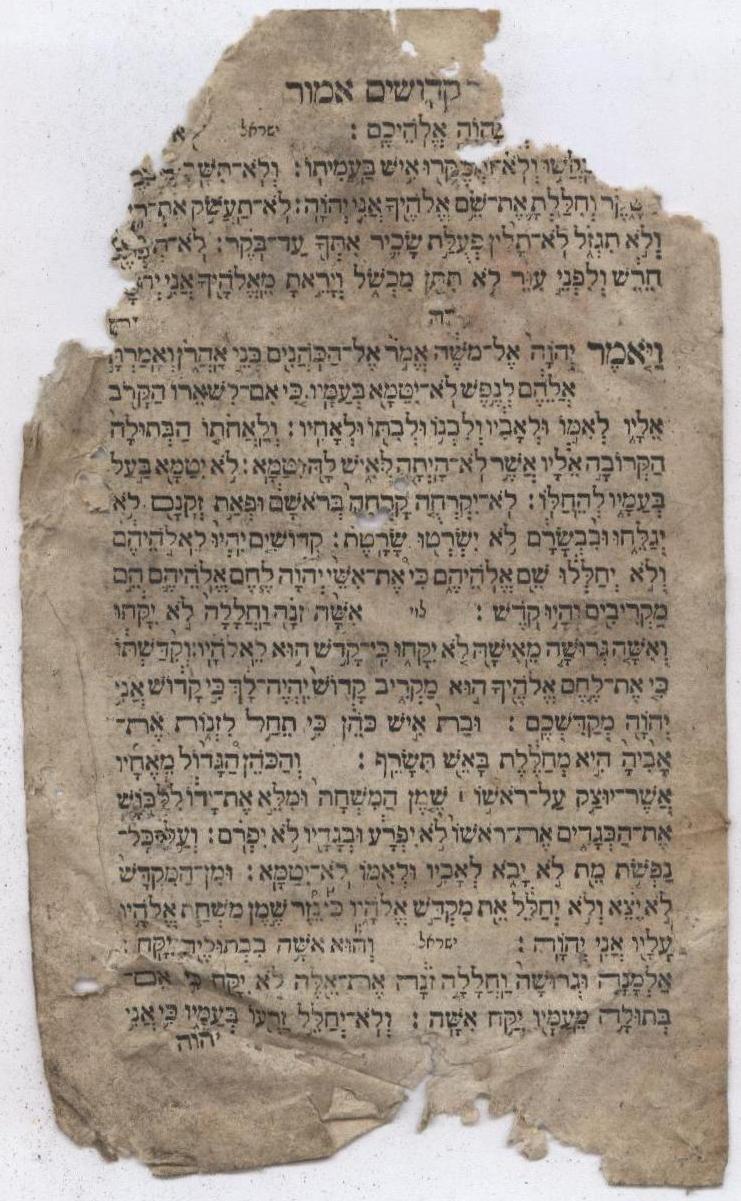 קדושים אמור
יְהוָה אֱלֹהֵיכֶם׃ ישראל
אִישׁ בַּעֲמִיתוֹ׃
וְחִלַּלְתָּ אֶת־שֵׁם אֱלֹהֶיךָ אֲנִי יְהוָה׃ לֹא־תַעֲשֹׁק
וְלֹא תִגְזֹל לֹא־תָלִין פְּעֻלַּת שָׂכִיר אִתְּךָ עַד־בֹּקֶר׃
חֵרֵשׁ וְלִפְנֵי עִוֵּר לֹא תִתֵּן מִכְשֹׁל וְיָרֵאתָ מֵּאֱלֹהֶיךָ אֲנִי
וַיֹּאמֶר יְהוָה אֶל־מֹשֶׁה אֱמֹר אֶל־הַכֹּהֲנִים בְּנֵי אַהֲרֹן וְאָמַרְתָּ
אֲלֵהֶם לְנֶפֶשׁ לֹא־יִטַּמָּא בְּעַמָּיו׃ כִּי אִם־לִשְׁאֵרוֹ הַקָּרֹב
אֵלָיו לְאִמּוֹ וּלְאָבִיו וְלִבְנוֹ וּלְבִתּוֹ וּלְאָחִיו׃ וְלַאֲחֹתוֹ הַבְּתוּלָה
הַקְּרוֹבָה אֵלָיו אֲשֶׁר לֹא־הָיְתָה לְאִישׁ לָהּ יִטַּמָּא׃ לֹא יִטַּמָּא בַּעַל
בְּעַמָּיו לְהֵחַלּוֹ׃ לֹא־יִקְרְחֻה קָרְחָה בְּרֹאשָׁם וּפְאַת זְקָנָם לֹא
יְגַלֵּחוּ וּבִבְשָׂרָם לֹא יִשְׂרְטוּ שָׂרָטֶת׃ קְדֹשִׁים יִהְיוּ לֵאלֹהֵיהֶם
וְלֹא יְחַלְּלוּ שֵׁם אֱלֹהֵיהֶם כִּי אֶת־אִשֵּׁי יְהוָה לֶחֶם אֱלֹהֵיהֶם הֵם
מַקְרִיבִים וְהָיוּ קֹדֶשׁ׃ לוי אִשָּׁה זֹנָה וַחֲלָלָה לֹא יִקָּחוּ
וְאִשָּׁה גְּרוּשָׁה מֵאִישָׁהּ לֹא יִקָּחוּ כִּי־קָדֹשׁ הוּא לֵאלֹהָיו׃ וְקִדַּשְׁתּוֹ
כִּי אֶת־לֶחֶם אֱלֹהֶיךָ הוּא מַקְרִיב קָדוֹשׁ יִהְיֶה־לָּךְ כִּי קָדוֹשׁ אֲנִי
יְהוָה מְקַדִּשְׁכֶם׃ וּבַת אִישׁ כֹּהֵן כִּי תֵחֵל לִזְנוֹת אֶת־
אָבִיהָ הִיא מְחַלֶּלֶת בָּאֵשׁ תִּשָּׂרֵף׃ וְהַכֹּהֵן הַגָּדוֹל מֵאֶחָיו
אֲשֶׁר־יוּצַק עַל־רֹאשׁוֹ ׀ שֶׁמֶן הַמִּשְׁחָה וּמִלֵּא אֶת־יָדוֹ לִלְבֹּשׁ
אֶת־הַבְּגָדִים אֶת־רֹאשׁוֹ לֹא יִפְרָע וּבְגָדָיו לֹא יִפְרֹם׃ וְעַל כָּל־
נַפְשֹׁת מֵת לֹא יָבֹא לְאָבִיו וּלְאִמּוֹ לֹא־יִטַּמָּא׃ וּמִן־הַמִּקְדָּשׁ
לֹא יֵצֵא וְלֹא יְחַלֵּל אֵת מִקְדַּשׁ אֱלֹהָיו כִּי נֵזֶר שֶׁמֶן מִשְׁחַת אֱלֹהָיו
עָלָיו אֲנִי יְהוָה׃ ישראל וְהוּא אִשָּׁה בִבְתוּלֶיהָ יִקָּח׃
אַלְמָנָה וּגְרוּשָׁה וַחֲלָלָה זֹנָה אֶת־אֵלֶּה לֹא יִקָּח כִּי אִם־
בְּתוּלָה מֵעַמָּיו יִקַּח אִשָּׁה׃ וְלֹא־יְחַלֵּל זַרְעוֹ בְּעַמָּיו כִּי אֲנִי
יהוה